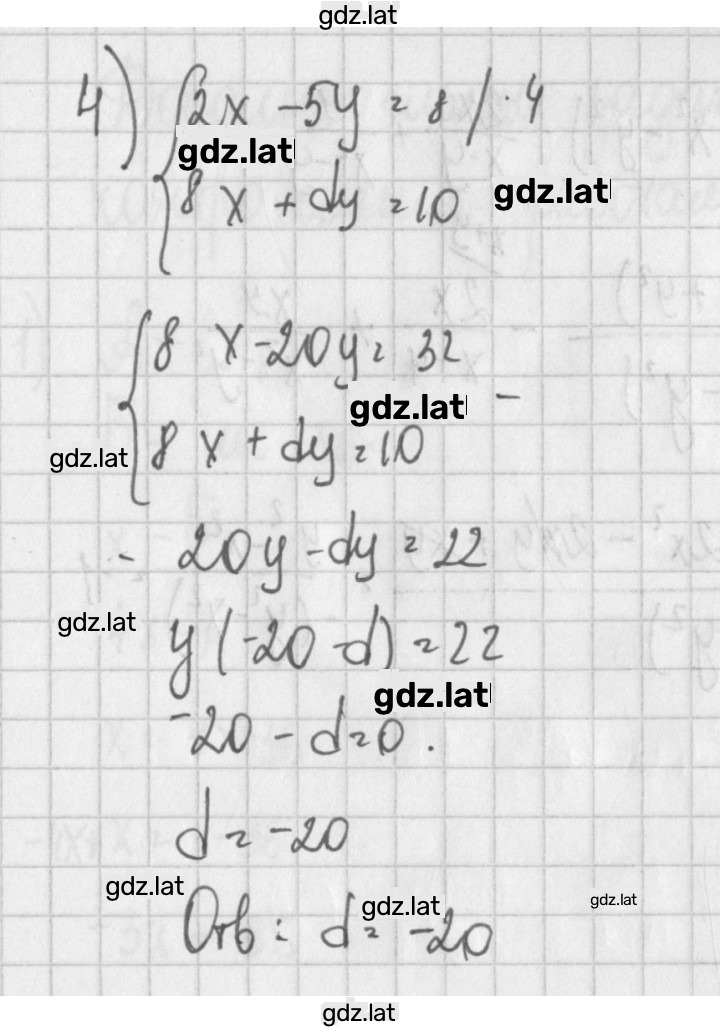 gdz.lat
4) { 2x - 5y = 8 / · 4
gdz.lat
8x + dy = 10
gdz.lat
{ 8x - 20y = 32
gdz.lat -
gdz.lat
8x + dy = 10
- 20y - dy = 22
gdz.lat
y (-20 - d) = 22
gdz.lat
-20 - d = 0.
d = -20
gdz.lat
gdz.lat
gdz.lat
Отв: d = -20
gdz.lat